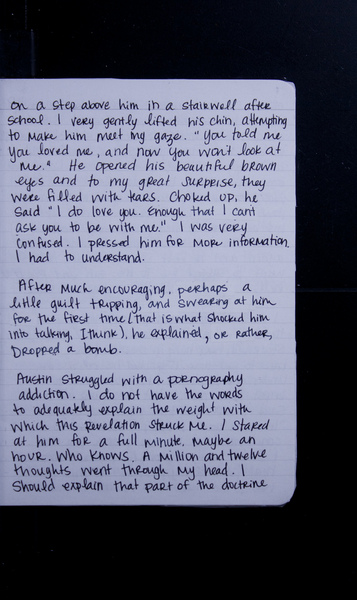 on a step above him in a stairwell after
school. I very gently lifted his chin, attempting
to make him meet my gaze. "You told me
you loved me, and now you won't look at
me." He opened his beautiful brown
eyes and to my great surprise, they
were filled with tears. Choked up, he
said "I do love you. Enough that I can't
ask you to be with me." I was very
confused. I pressed him for more information.
I had to understand.
After much encouraging, perhaps a
little guilt tripping, and swearing at him
for the first time (that is what shocked him
into talking, I think), he explained, or rather,
dropped a bomb.
Austin struggled with a pornography
addiction. I do not have the words
to adequately explain the weight with
which this revelation struck me. I stared
at him for a full minute. Maybe an
hour. Who knows. A million and twelve
thoughts went through my head. I
should explain that part of the doctrine